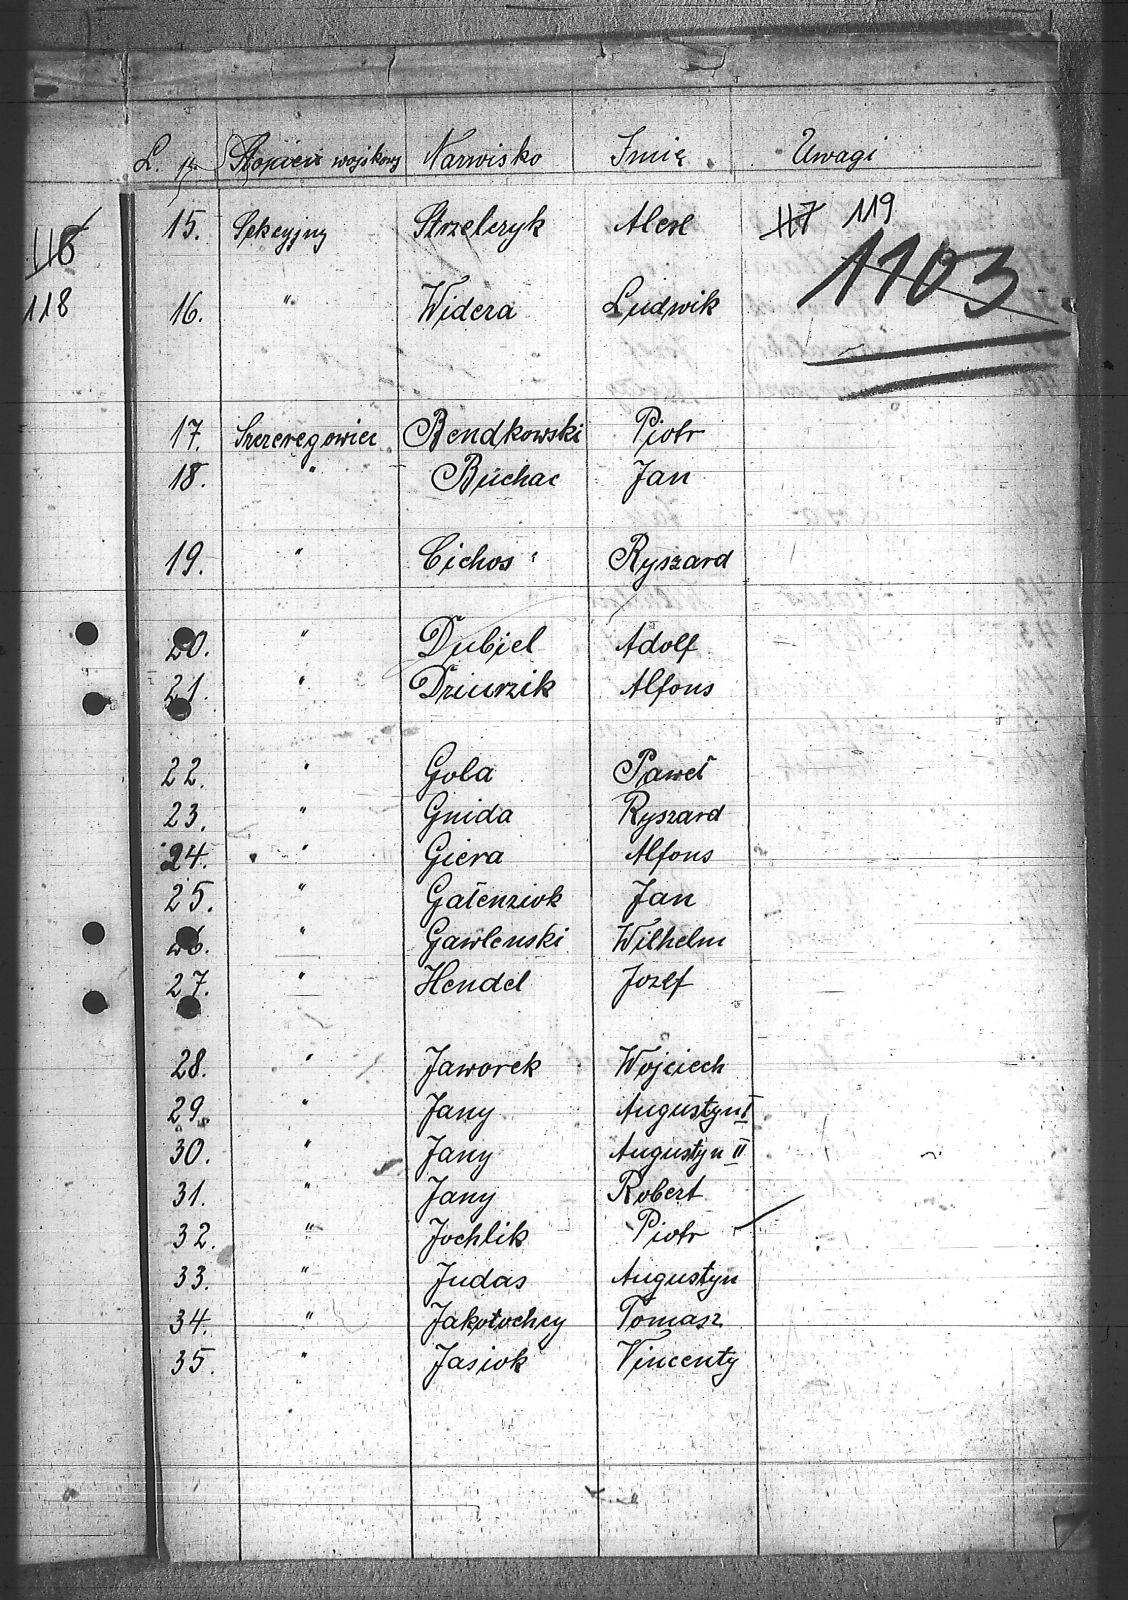 L. p. Stopień wojskowy Nazwisko Imię Uwagi
117 119
15. Sekcyjny Strzelczyk Alex
118
1103
118
16. " Widera Ludwik
17. Szeregowiec Bendkowski Piotr
18. " Buchac Jan
19. " Cichos Ryszard
20. " Dubiel Adolf
21. " Dziurzik Alfons
22. " Gola Paweł
23. " Gnida Ryszard
24. " Giera Alfons
25. " Gałenziok Jan
26. " Gawlenski Wilhelm
27. " Hendel Jozef
28. " Jaworek Wojciech
29. " Jany Augustyn I
30. " Jany Augustyn II
31. " Jany Robert
32. " Jochlik Piotr
33. " Judas Augustyn
34. " Jakotochcy Tomasz
35. " Jasiok Vincenty